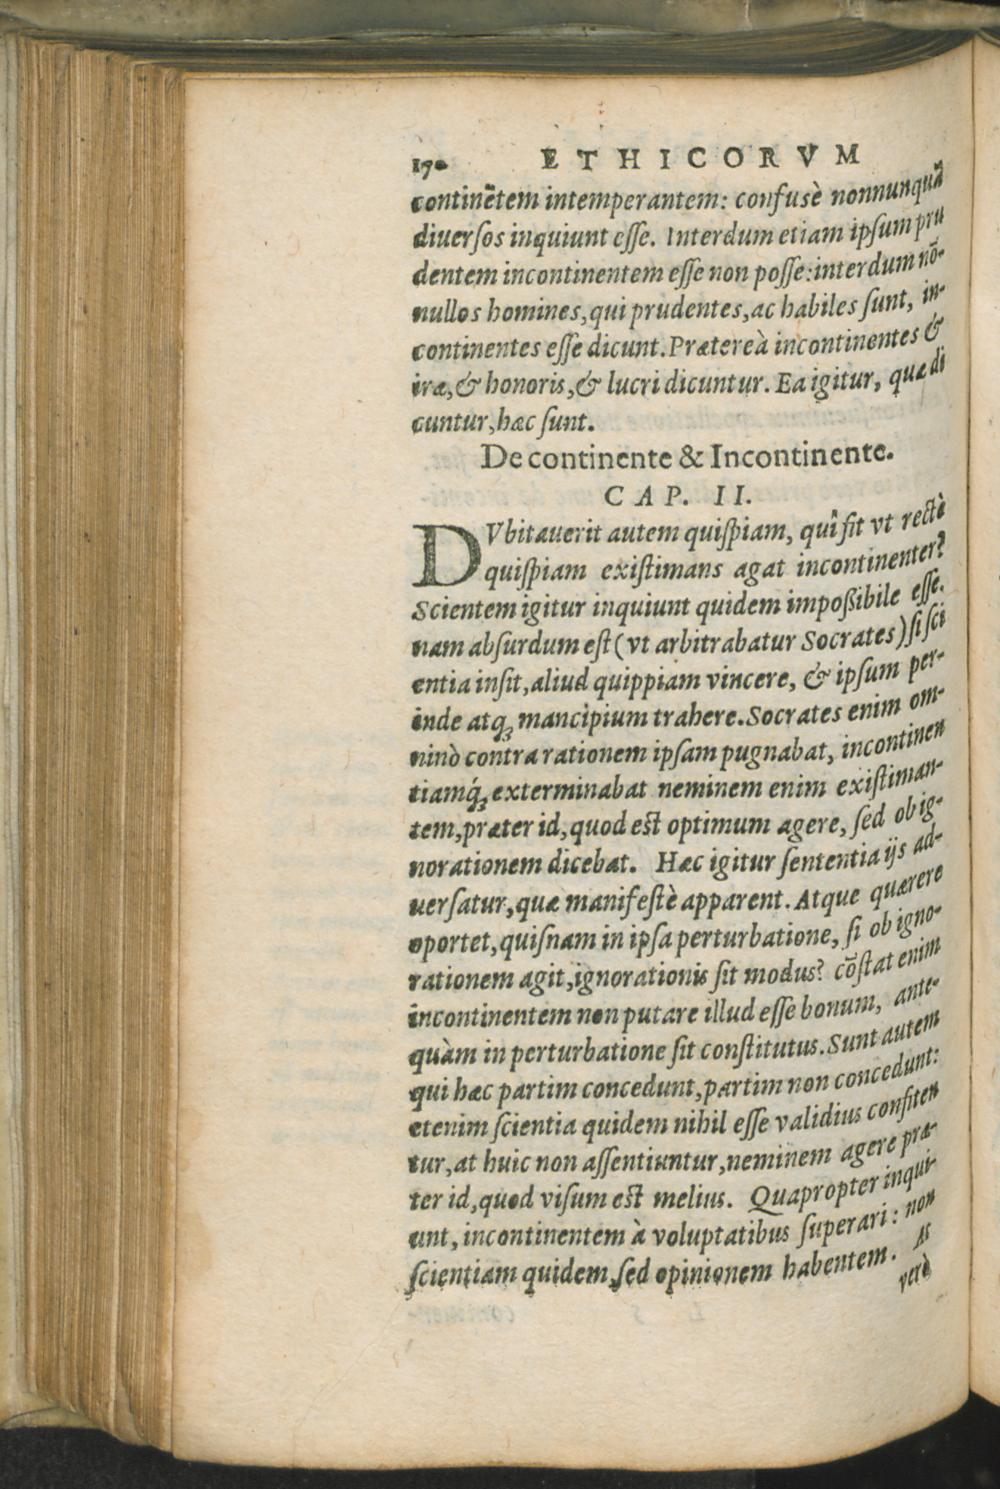 170 ETHICORVM
continētem intemperantem: confusè nonnunquā
diuersos inquiunt esse. Interdum etiam ipsum pru
dentem incontinentem esse non posse: interdum nō-
nullos homines, qui prudentes, ac habiles sunt, in-
continentes esse dicunt. Prætereà incontinentes &
iræ, & honoris, & lucri dicuntur. Ea igitur, quæ di
cuntur, hæc sunt.
De continente & Incontinente.
CAP. II.
DVbitauerit autem quispiam, quî fit vt rectè
quispiam existimans agat incontinenter?
Scientem igitur inquiunt quidem impoßibile esse.
nam absurdum est (vt arbitrabatur Socrates) si sci
entia insit, aliud quippiam vincere, & ipsum per-
inde atq; mancipium trahere. Socrates enim om-
ninò contra rationem ipsam pugnabat, incontinen
tiamq́; exterminabat neminem enim existiman-
tem, præter id, quod est optimum agere, sed ob ig-
norationem dicebat. Hæc igitur sententia ijs ad-
uersatur, quæ manifestè apparent. Atque quærere
oportet, quisnam in ipsa perturbatione, si ob igno-
rationem agit, ignorationis sit modus? cōstat enim
incontinentem non putare illud esse bonum, ante-
quàm in perturbatione sit constitutus. Sunt autem
qui hæc partim concedunt, partim non concedunt:
etenim scientia quidem nihil esse validius confiten
tur, at huic non assentiuntur, neminem agere præ-
ter id, quod visum est melius. Quapropter inqui-
unt, incontinentem à voluptatibus superari: non
scientiam quidem, sed opinionem habentem. At
verò